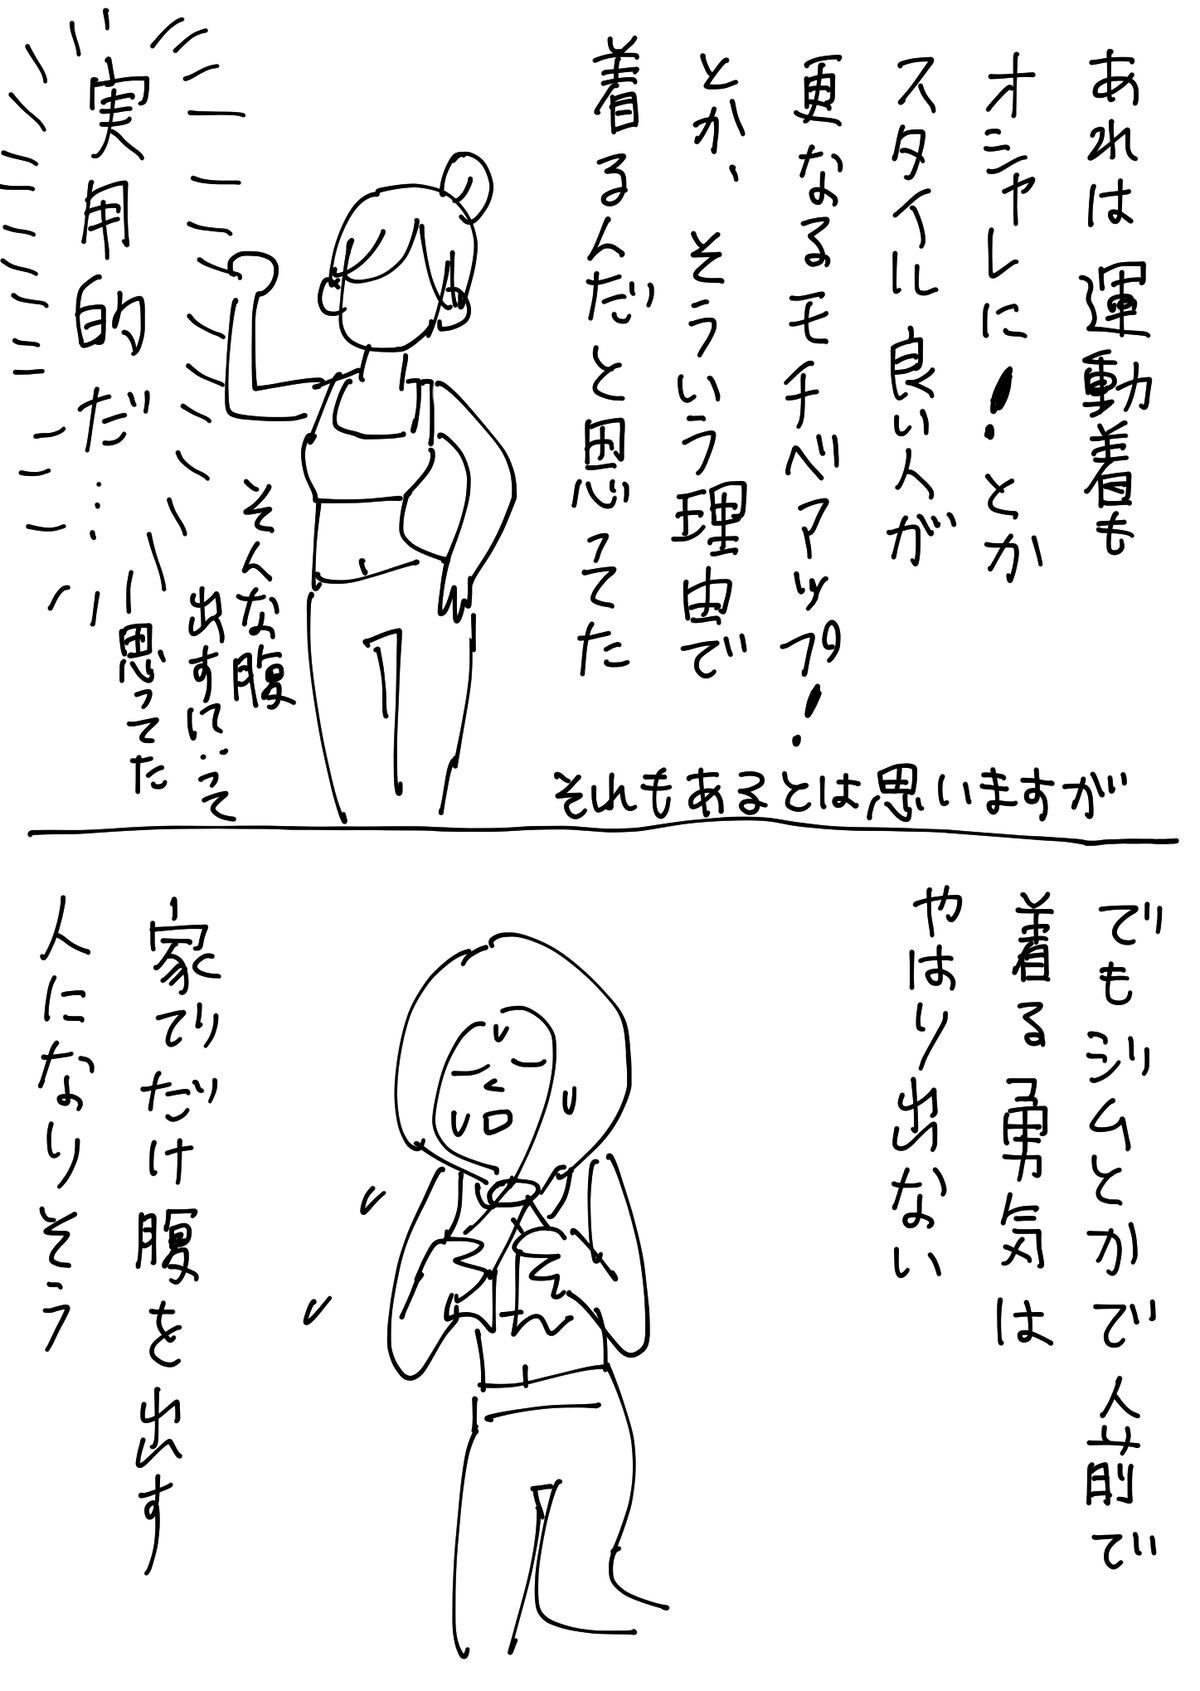 あれは運動着も
オシャレに!とか
スタイル良い人が
更なるモチベアップ!
とか、そういう理由で
着るんだと思ってた
それもあるとは思いますが
そんな腹
出すに…って
思ってた
実用的だ…
でもジムとかで人前で
着る勇気は
やはり出ない
家でだけ腹を出す
人になりそう